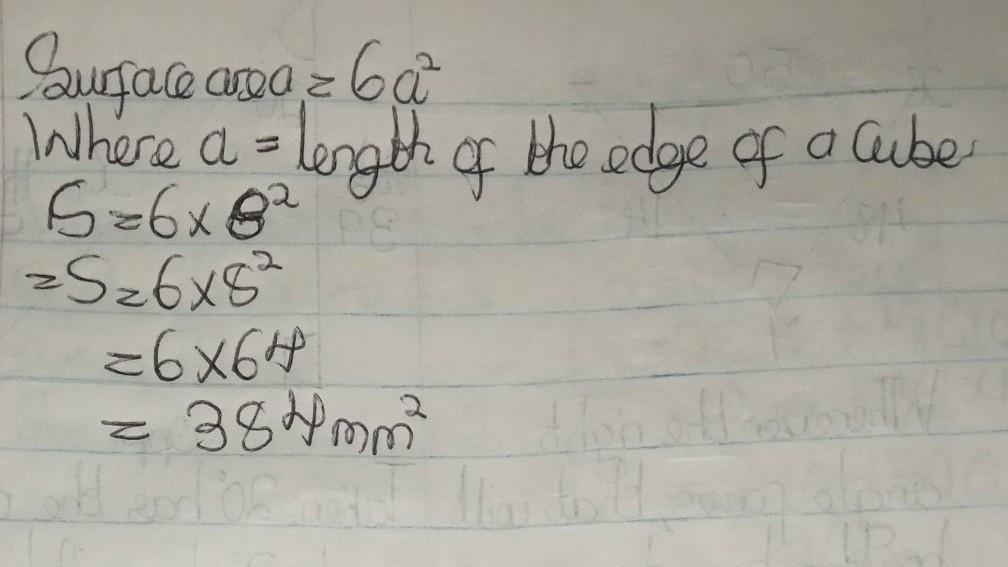 Surface area = 6a²
Where a = length of the edge of a cube
S = 6 × 8²
= S = 6 × 8²
= 6 × 64
= 384mm²